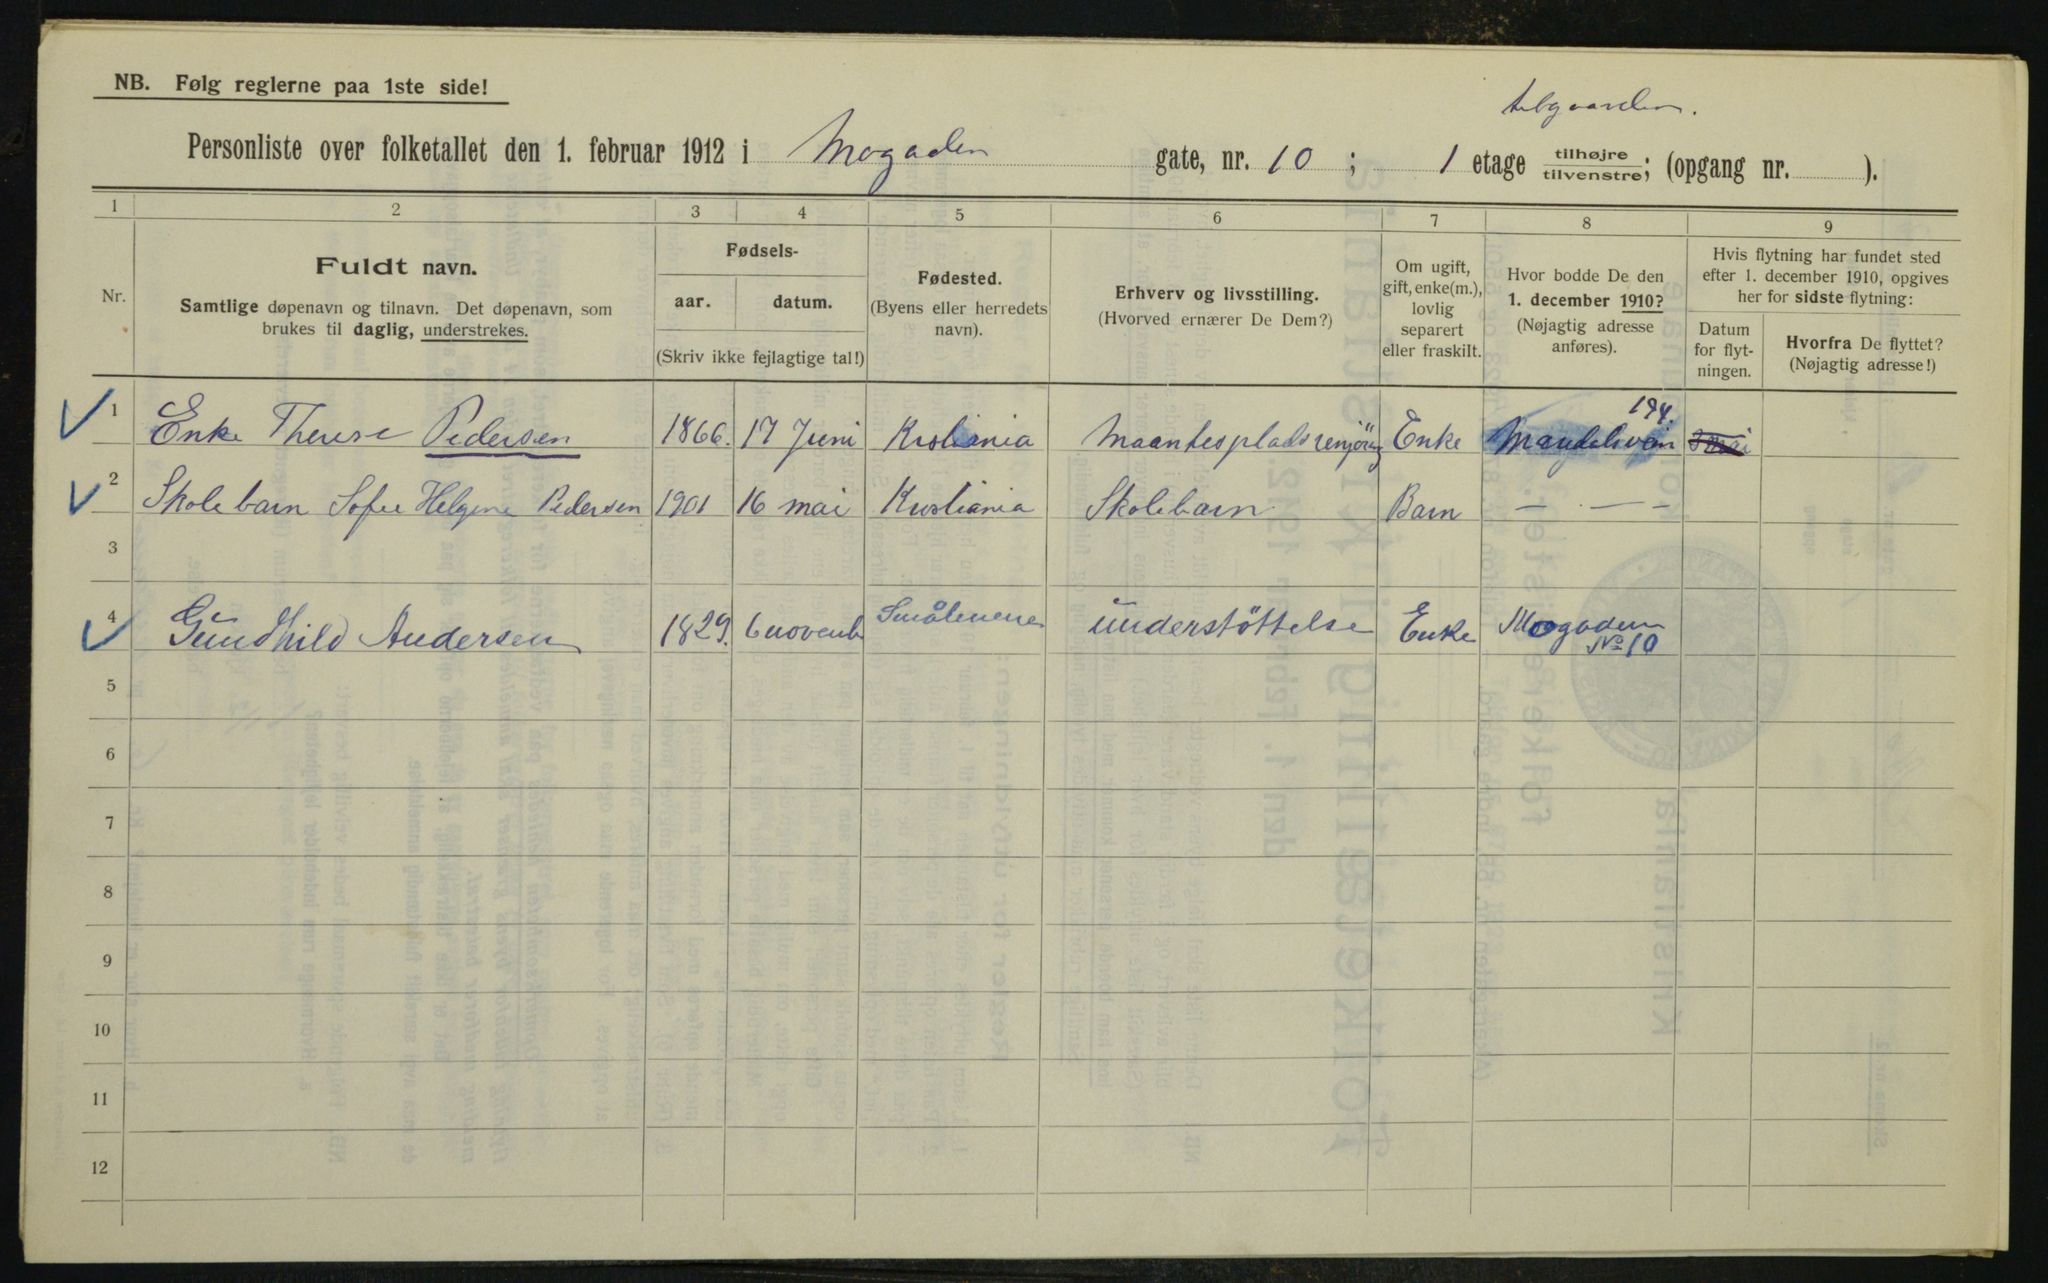 NB. Følg reglerne paa 1ste side!
Personliste over folketallet den 1. februar 1912 i Mogaden gate, nr. 10; 1 etage tilhøjre tilvenstre; (opgang nr. ).
1 2 3 4 5 6 7 8 9
Nr.
Fuldt navn.
Samtlige døpenavn og tilnavn. Det døpenavn, som
brukes til daglig, understrekes.
Fødsels-
aar. datum.
(Skriv ikke fejlagtige tal!)
Fødested.
(Byens eller herredets
navn).
Erhverv og livsstilling.
(Hvorved ernærer De Dem?)
Om ugift,
gift, enke(m.),
lovlig
separert
eller fraskilt.
Hvor bodde De den
1. december 1910?
(Nøjagtig adresse
anføres).
Hvis flytning har fundet sted
efter 1. december 1910, opgives
her for sidste flytning:
Datum
for flyt-
ningen.
Hvorfra De flyttet?
(Nøjagtig adresse!)
1 Enke Therese Pedersen 1866. 17 Juni Kristiania Enke 194.
2 Skolebarn Sofie Helgine Pedersen 1901 16 mai Kristiania Skolebarn Barn — . — –
3
4 Gündhild Andersen 1829. 6 novemb Smålenene understöttelse Enke Mogaden
No 10
5
6
7
8
9
10
11
12